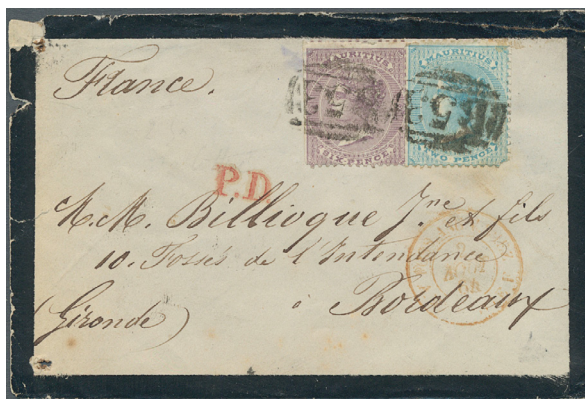 France.
MAURITIUS
SIX PENCE
MAURITIUS
TWO PENCE
P.D.
M.M. Billioque Jne et fils
10. Fossés de l'Intendance
à Bordeaux
(Gironde)
9
AOUT
64